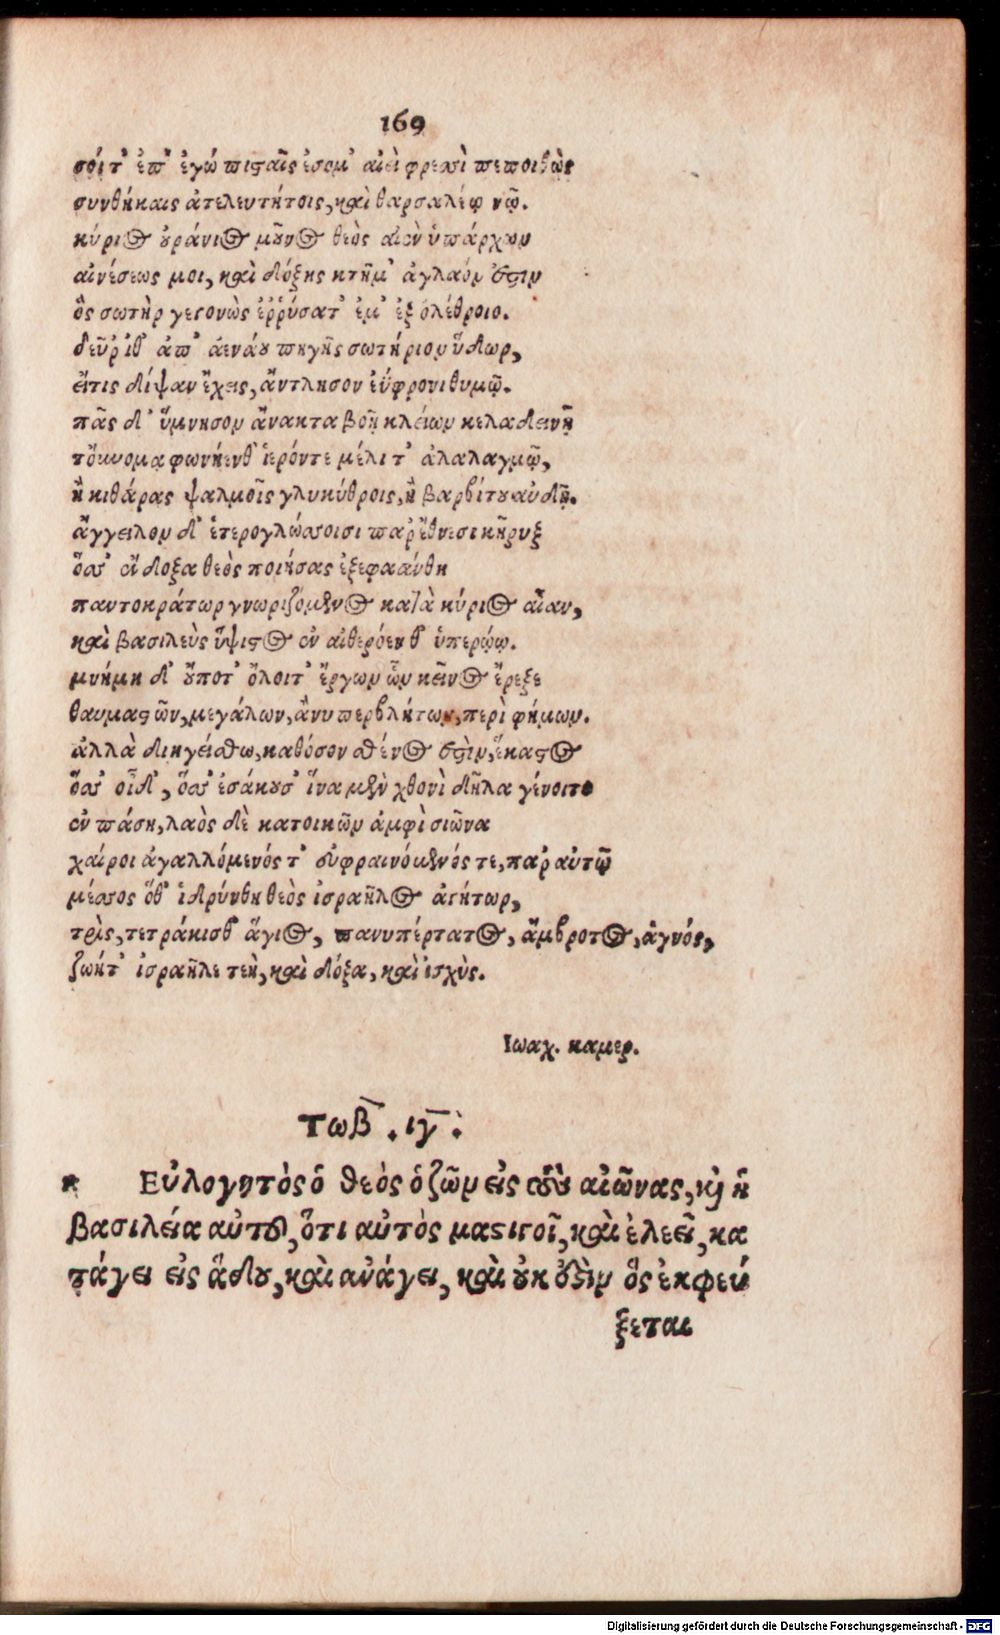 169
σοί τ' ἐπ' ἐγώ πιςαῖς ἔσομ' αἰεὶ φρεσὶ πεποιθὼς
συνθήκαις ἀτελευτήτοις, καὶ θαρσαλέῳ νῷ.
κύριος οὐράνιος μοῦνος θεὸς αἰὲν ὑπάρχων
αἰνέσεως μοι, καὶ δόξης κτῆμ' ἀγλαόν ἐστιν
ὃς σωτὴρ γεγονὼς ἐῤῥύσατ' ἐμ' ἐξ ὀλέθροιο.
δεῦρ ἴθ' ἀπ' ἀενάου πηγῆς σωτήριον ὕδωρ,
εἴτις δίψαν ἔχεις, ἄντλησον ἐύφρονι θυμῷ.
πᾶς δ' ὕμνησον ἄνακτα βοῇ κλείων κελαδεινῇ
τοὔνομα φωνήενθ' ἱερόν τε μέλι τ' ἀλαλαγμῷ,
ἢ κιθάρας ψαλμοῖς γλυκύθροις, ἢ βαρβίτου αὐδῇ.
ἄγγειλον δ' ἑτερογλώσσοισι παρ' ἔθνεσι κῆρυξ
ὅσσ' ἔνδοξα θεὸς ποιήσας ἐξεφαάνθη
παντοκράτωρ γνωριζόμενος κατὰ κύριος αἶαν,
καὶ βασιλεὺς ὕψιστος ἐν αἰθερόεντι θ' ὑπερῴῳ.
μνήμη δ' οὔποτ' ὄλοιτ' ἔργων ὧν κεῖνος ἔρεξε
θαυμαςῶν, μεγάλων, ἀνυπερβλήτων, περὶ φήμων.
ἀλλὰ διηγείσθω, καθόσον σθένος ἐστὶν, ἕκαστος
ὅσσ' οἶδ', ὅσσ' ἐσάκουσ' ἵνα μὲν χθονὶ δῆλα γένοιτο
ἐν πάσῃ, λαὸς δὲ κατοικῶν ἀμφὶ σιῶνα
χαίροι ἀγαλλόμενός τ' εὐφραινόμενός τε, παρ' αὐτῷ
μέσσος ὅθ' ἱδρύνθη θεὸς ἰσραῆλος ἀγήτωρ,
τρὶς, τετράκισθ' ἅγιος, πανυπέρτατος, ἄμβροτος, ἁγνός,
ζωή τ' ἰσραῆλε τεὴ, καὶ δόξα, καὶ ἰσχὺς.
Ιωαχ. καμερ.
Τωβ̄. ιγ̄.
* Εὐλογητὸς ὁ θεὸς ὁ ζῶν εἰς τοὺς αἰῶνας, καὶ ἡ
βασιλεία αὐτοῦ, ὅτι αὐτὸς μαςιγοῖ, καὶ ἐλεεῖ, κα
τάγει εἰς ᾅδου, καὶ ἀνάγει, καὶ οὐκ ἔστιν ὃς ἐκφεύ
ξεται
Digitalisierung gefördert durch die Deutsche Forschungsgemeinschaft - DFG